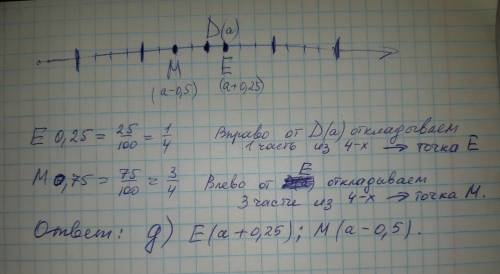 D(a)
M E
(a-0,5) (a+0,25)
E 0,25 = 25/100 = 1/4 Вправо от D(a) откладываем
1 часть из 4-х → точка E
M 0,75 = 75/100 = 3/4 Влево от E откладываем
3 части из 4-х → точка M.
Ответ: д) E(a+0,25); M(a-0,5).